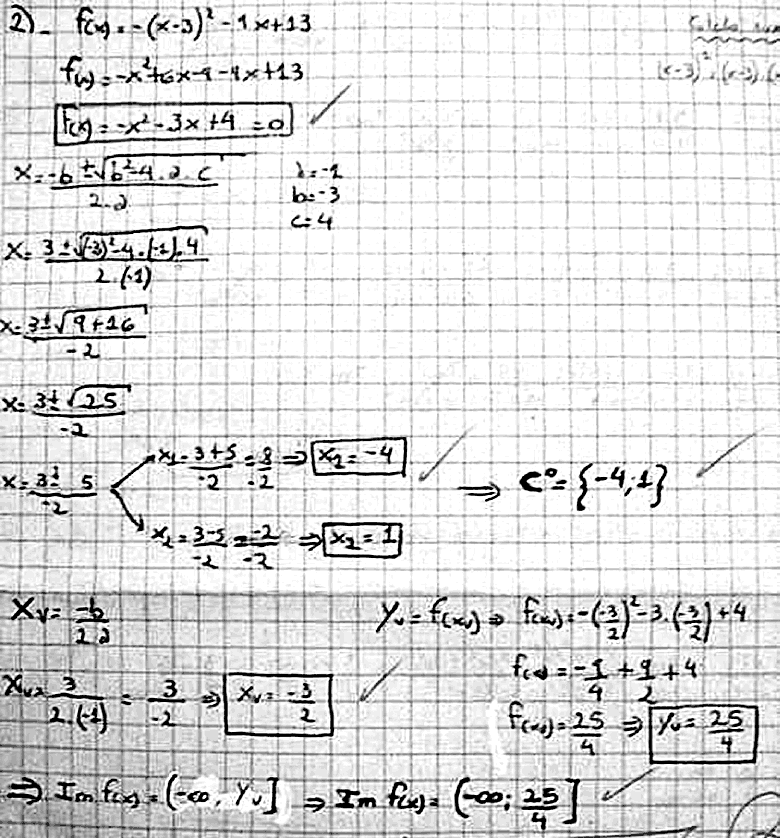 2)- f(x)=-(x-3)²-9x+13
f(x)=-x²+6x-9-9x+13
f(x)=-x²-3x+4=0
x=-b±√(b²-4.a.c)/2.a
a=-1
b=-3
c=4
x=3±√((-3)²-4.(-1).4)/2.(-1)
x=3±√(9+16)/-2
x=3±√25/-2
x=3±5/-2
x₁=3+5/-2=8/-2⇒x₁=-4
x₂=3-5/-2=-2/-2⇒x₂=1
⇒ C⁰={-4;1}
Xv=-b/2.a
Xv=3/2.(-1)=3/-2⇒Xv=-3/2
Yv=f(xv)⇒f(xv)=-(-3/2)²-3.(-3/2)+4
f(xv)=-9/4+9/2+4
f(xv)=25/4⇒Yv=25/4
⇒ Im f(x)=(-∞, Yv]⇒Im f(x)=(-∞;25/4]